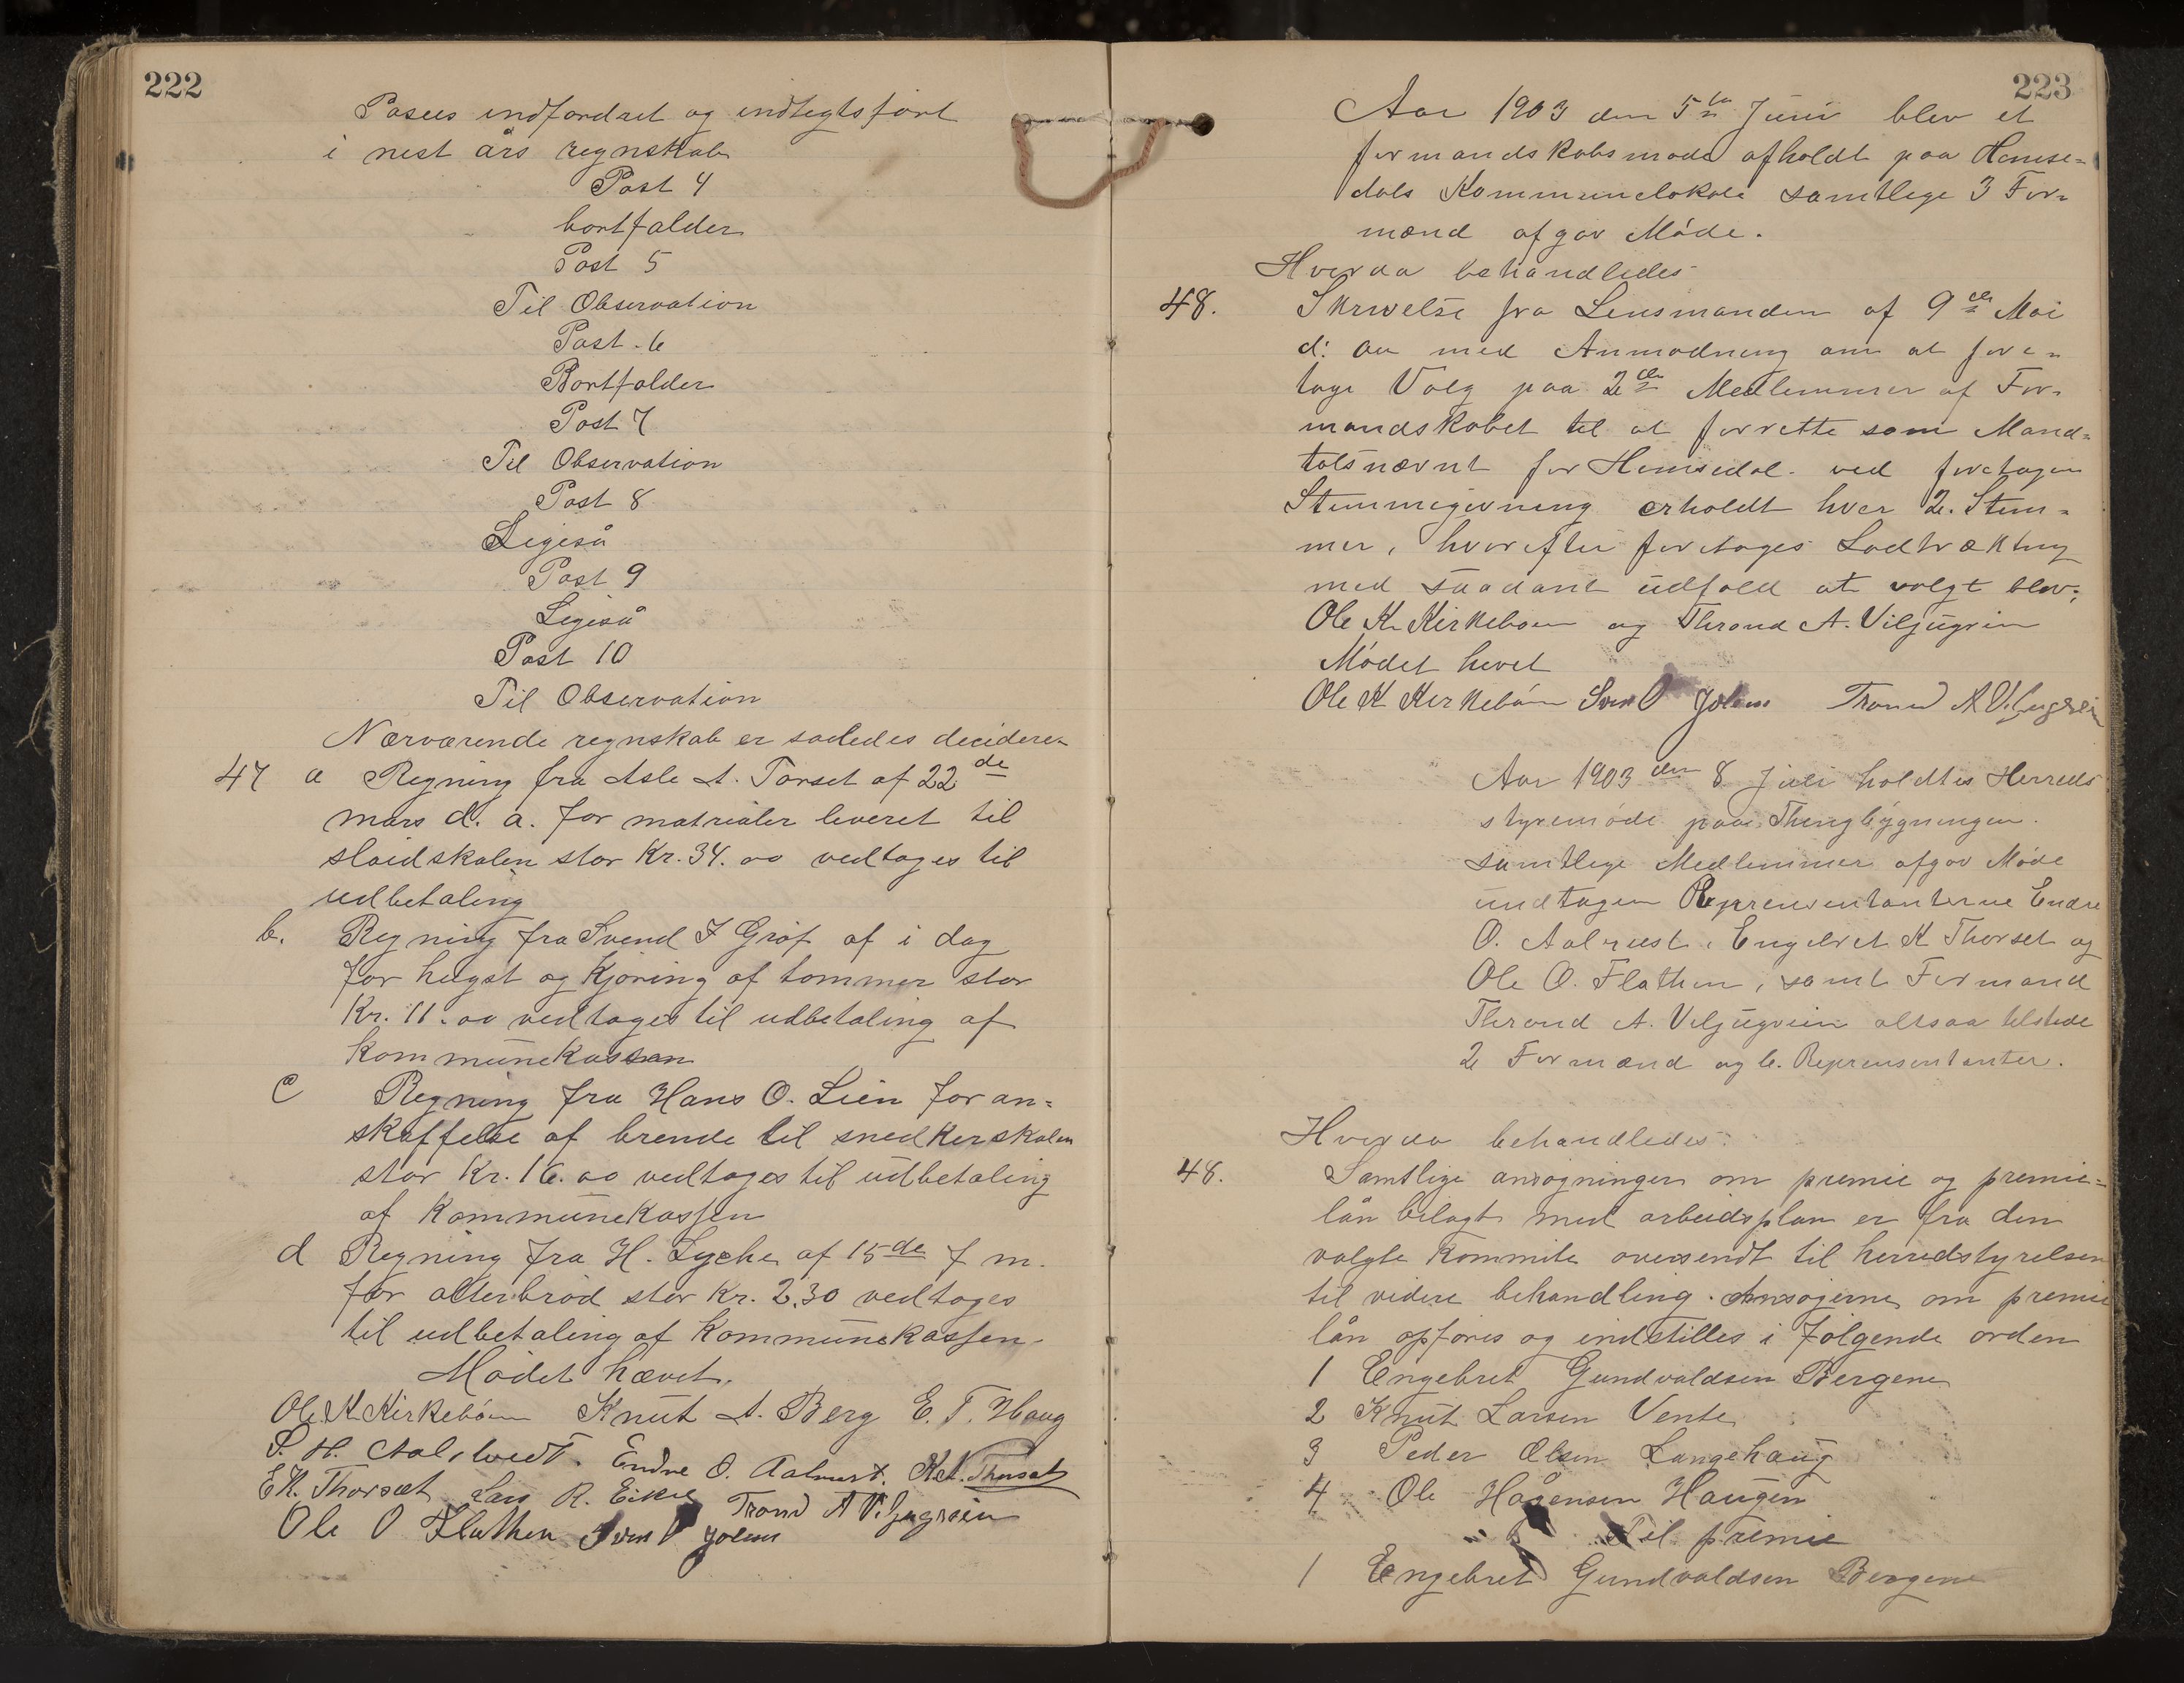 222
Poseus indfordret og indtegtsført
i nest års regnskab
Post 4
bortfalder
Post 5
Til Observation
Post 6
Bortfalder
Post 7
Til Observation
Post 8
Ligeså
Post 9
Ligeså
Post 10
Til Observation
Nærværende regnskab er saaledes decidere-
47 a Regning fra Asle A. Torset af 22de
mars d. a. for matrialer leveret til
sløidskolen stor Kr. 34.00 vedtages til
udbetaling
b. Regning fra Svend I Grøf af i dag
for hugst og kjøring af tømmer stor
Kr. 11.00 vedtages til udbetaling af
kommunekassen
c Regning fra Hans O. Lien for an=
skaffelse af brende til snedkerskolen
stor Kr. 16.00 vedtages til udbetaling
af Kommunekassen
d Regning fra H. Lyche af 15de f m.
for alterbrød stor Kr. 2.30 vedtages
til udbetaling af Kommunekassen
Mødet hævet.
Ole K Kirkebøen Knut A. Berg E. T. Haug
Endre O. Aalrust. K.A. Thorset
E K. Thorset Lars R. Eikre Trond A Viljugrein
Ole O Flathen Sven O Jolem
223
Aar 1903 den 5te Juni blev et
formandskabsmøde afholdt paa Hemse=
dals Kommunelokale samtlige 3 For=
mænd afgav Møde.
Hvorda behandledes
48. Skrivelse fra Lensmanden af 9de Mai
d: aa med Anmodning om at fore=
tage Valg paa 2de Medlemmer af For=
mandskabet til at forrette som Mand=
talsnævnt for Hemsedal. ved foretagen
Stemmegivning erholdt hver 2. Stem=
mer, hvorefter foretages Lodtrækning
med saadant udfald at valgt blev:
Ole K. Kirkeboen og Thrond A. Viljugrein
Mødet hevet
Ole K Kirkebøen Sven O Jolem Trond A Viljugrein
Aar 1903 den 8 Juli holdtes Herreds
styremøde paa Thingbygningen.
samtlige Medlemmer afgav Møde
undtagen Representanterne Endre
O. Aalrust, Engebret K Thorset og
Ole O. Flathen, samt Formand
Thrond A. Viljugrein altsaa tilstede
2 Formænd og 6. Reprensentanter.
Hvorda behandledes:
48. Samtlige ansøgninger om premie og premie=
lån bilagt med arbeidsplan er fra den
valgte kommite oversendt til herredstyrelsen
til videre behandling. Ansøgerne om premie
lån opføres og indstilles i følgende orden
1 Engebret Gundvaldsen Bergene
2 Knut Larsen Vente
3 Peder Olsen Langehaug
4 Ole Hågensen Haugen
Til premie
1 Engebret Gundvaldsen Bergene